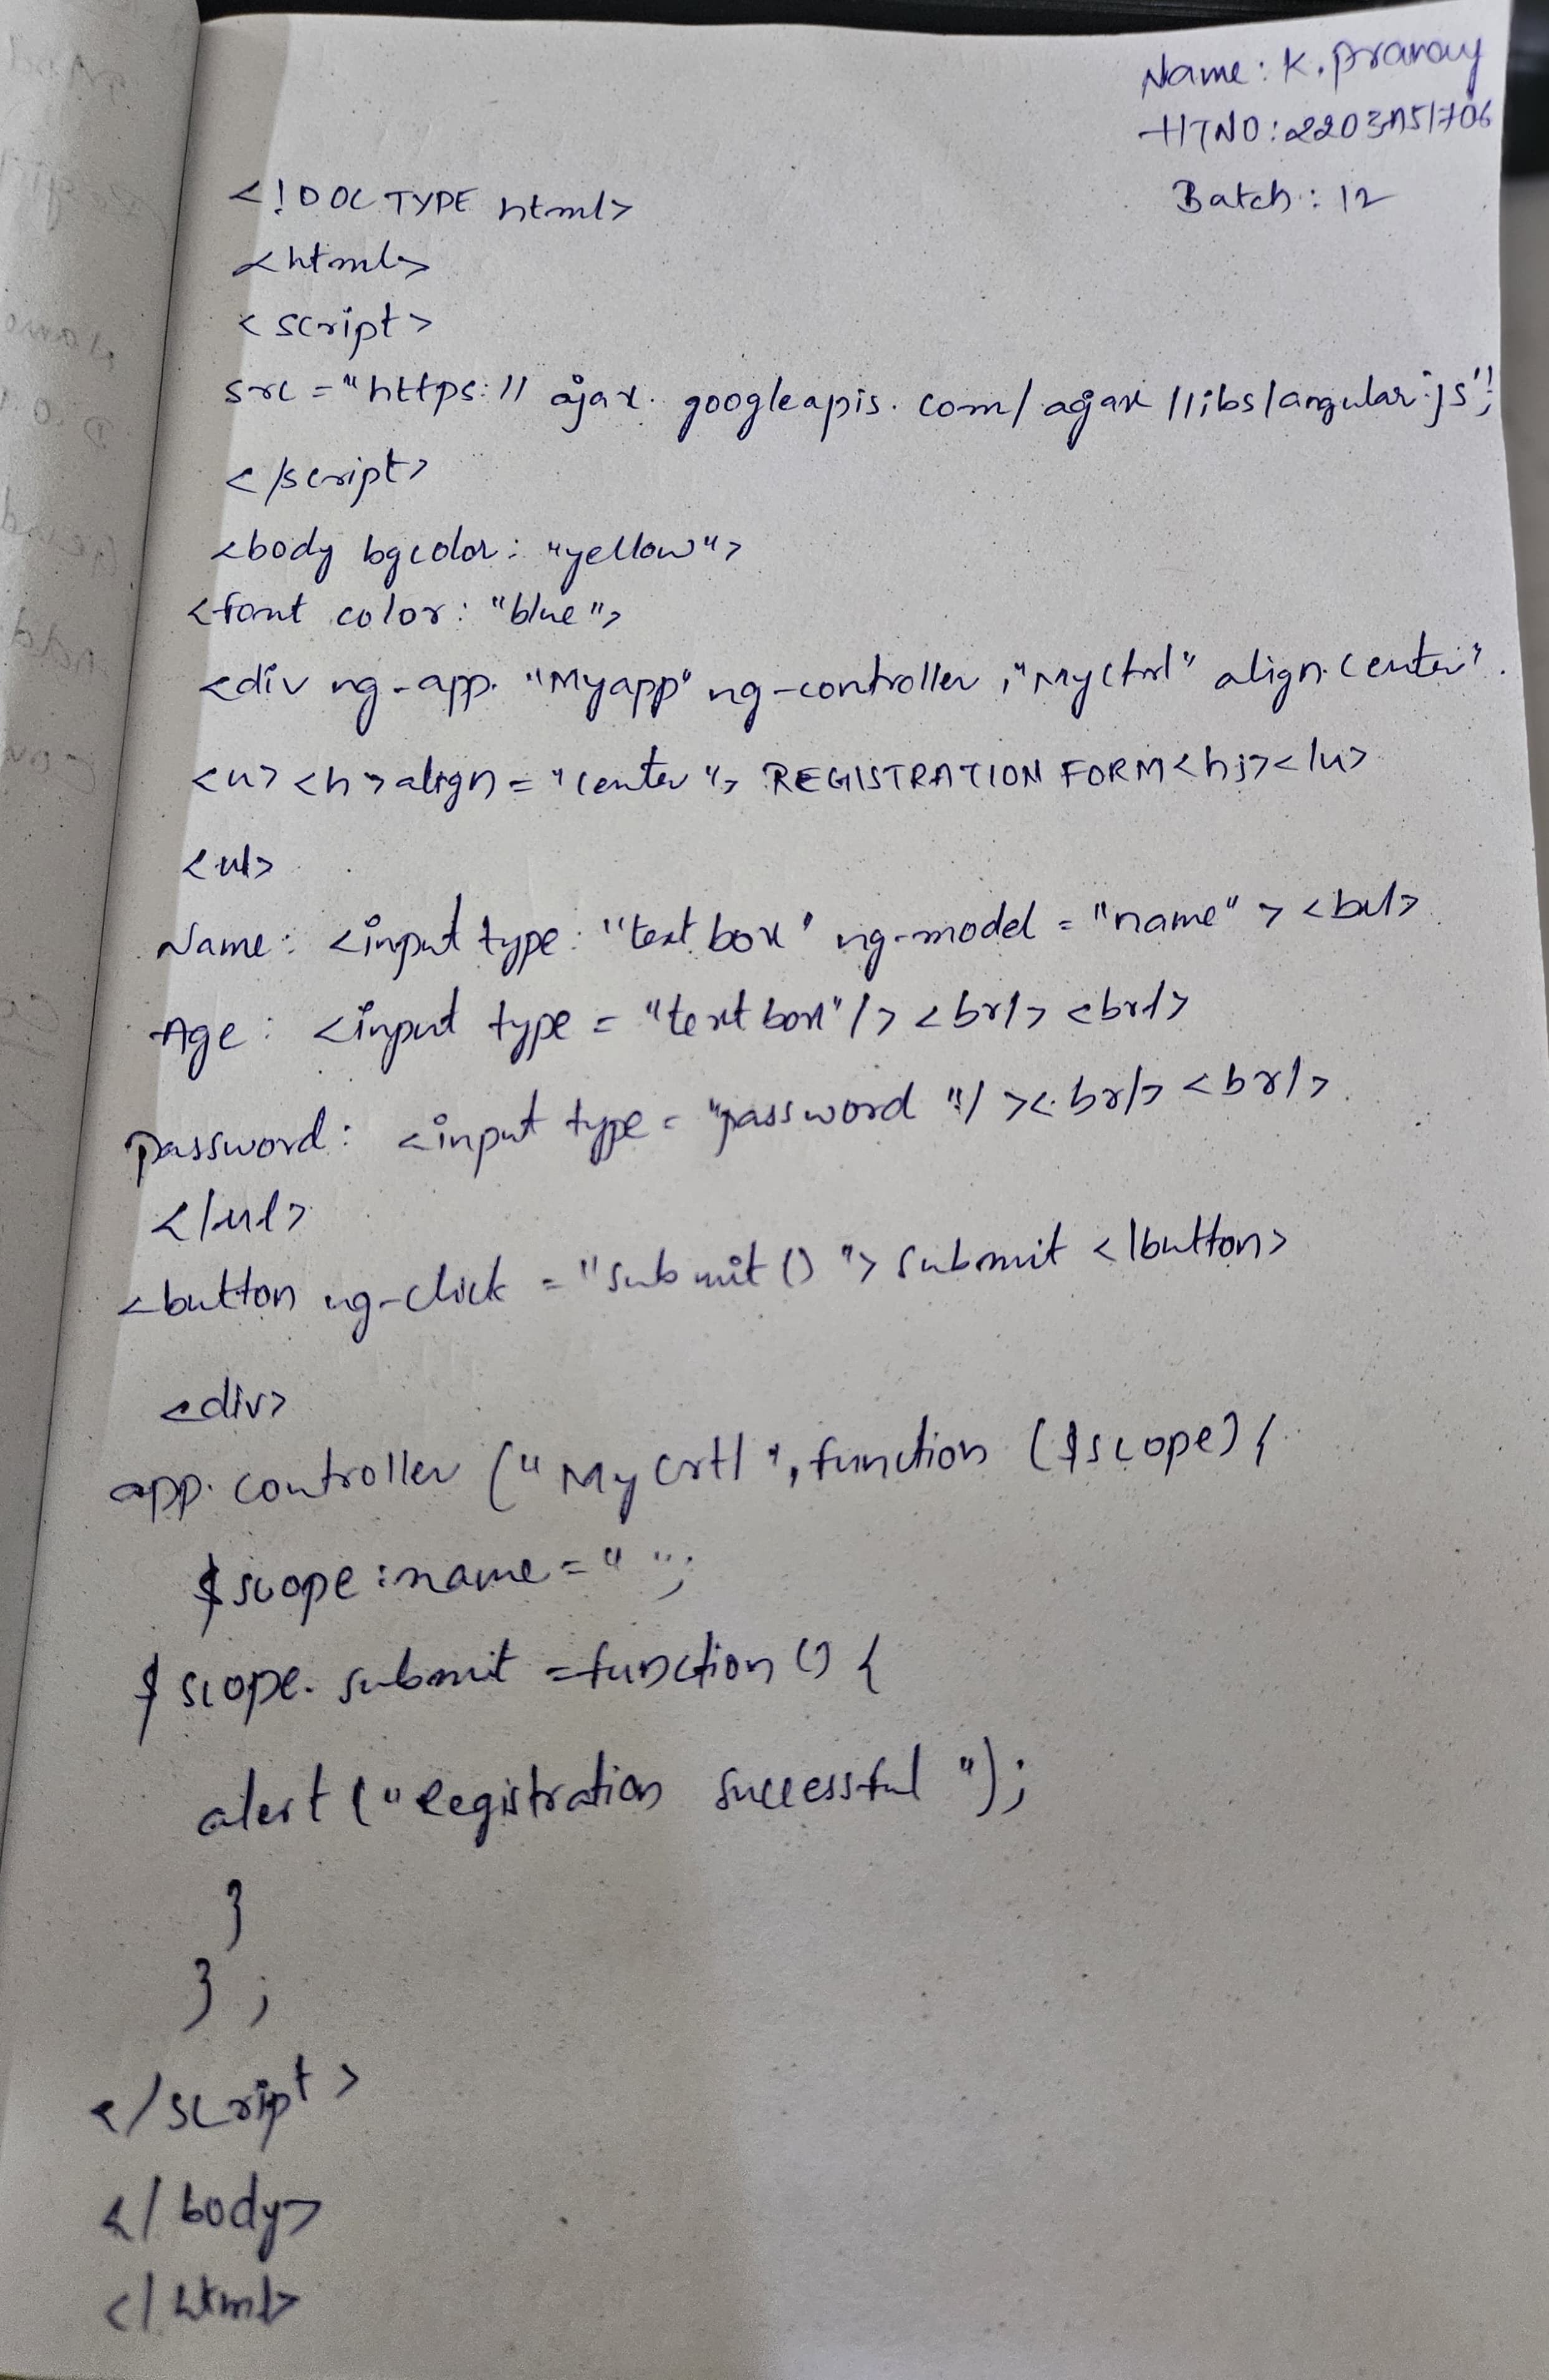 Name: K. Pranay
HTNO: 2203A51706
Batch: 12
<!DOCTYPE html>
<html>
<script>
src = "https://ajax.googleapis.com/ajax/libs/angular.js";
</script>
<body bgcolor: "yellow">
<font color: "blue">
<div ng-app. "Myapp" ng-controller ;"MyCtrl" align. Center".
<u> <h> align = "center"> REGISTRATION FORM <h1> </u>
<ul>
Name: <input type: "text box" ng-model = "name" > <br/>
Age: <input type = "text box"/> <br/> <br/>
Password: <input type = "password"/> <br/> <br/>
</ul>
<button ng-click = "submit()"> submit </button>
<div>
app.controller ("MyCrtl", function ($scope) {
$scope:name = " ";
$scope.submit = function () {
alert ("Registration successful");
}
};
</script>
</body>
</html>